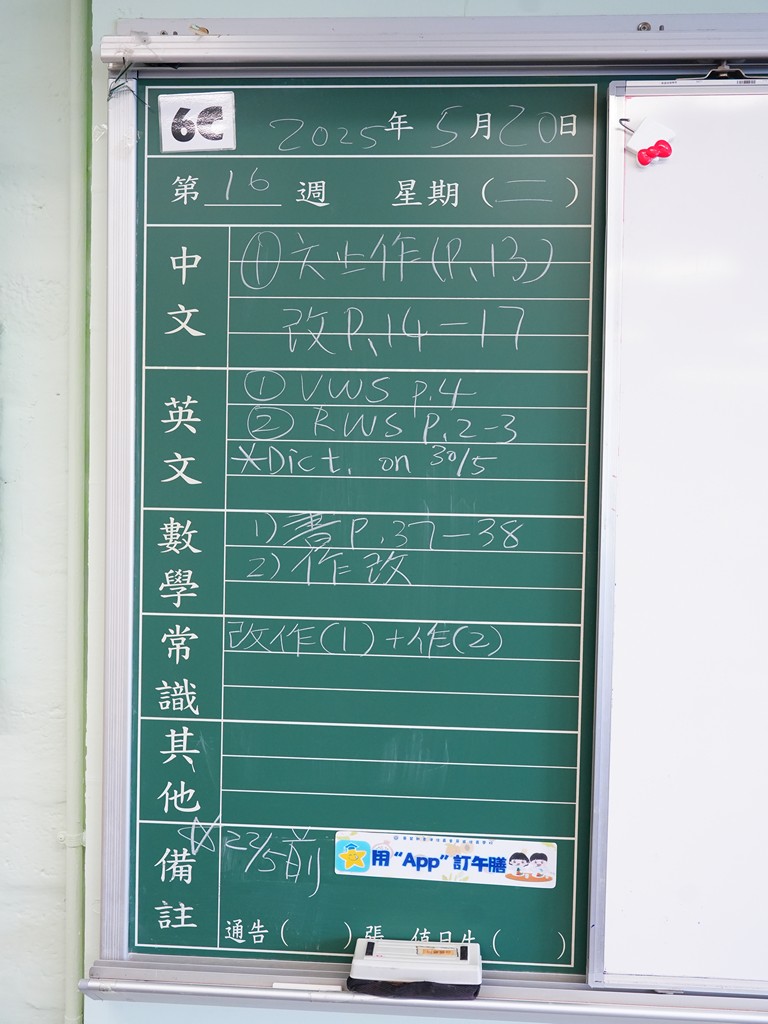 6C 2025年5月20日
第16週 星期(二)
中文
① 六上作(P.13)
改P.14-17
英文
① VWS p.4
② RWS p.2-3
*Dict. on 30/5
數學
1) 書P.37-38
2) 作改
常識
改作(1)+作(2)
其他
備註
☆22/5前
用"App"訂午膳
通告( )張 值日生( )